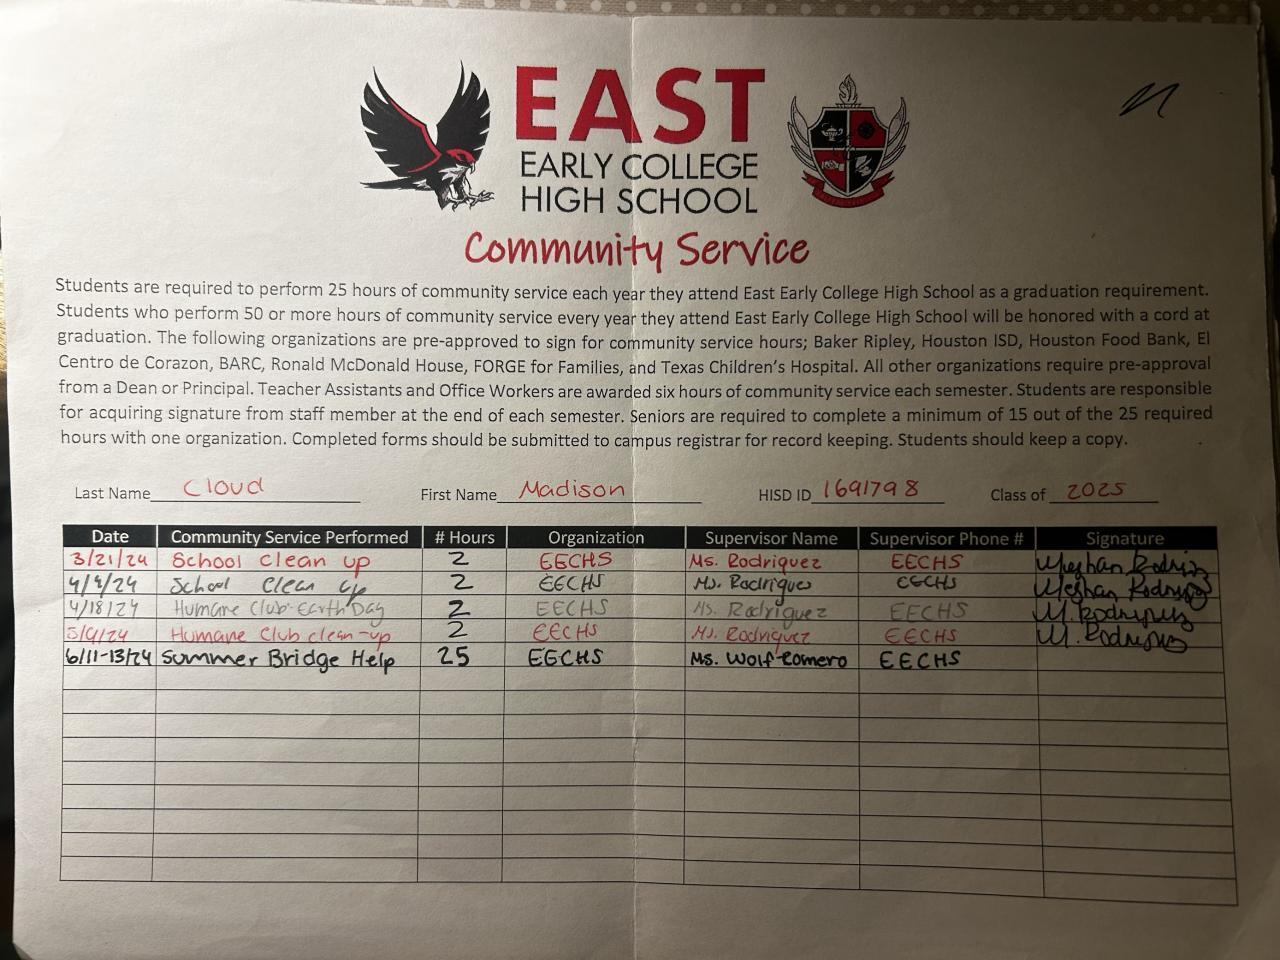 EAST
EARLY COLLEGE
HIGH SCHOOL
Community Service
Students are required to perform 25 hours of community service each year they attend East Early College High School as a graduation requirement.
Students who perform 50 or more hours of community service every year they attend East Early College High School will be honored with a cord at
graduation. The following organizations are pre-approved to sign for community service hours; Baker Ripley, Houston ISD, Houston Food Bank, El
Centro de Corazon, BARC, Ronald McDonald House, FORGE for Families, and Texas Children's Hospital. All other organizations require pre-approval
from a Dean or Principal. Teacher Assistants and Office Workers are awarded six hours of community service each semester. Students are responsible
for acquiring signature from staff member at the end of each semester. Seniors are required to complete a minimum of 15 out of the 25 required
hours with one organization. Completed forms should be submitted to campus registrar for record keeping. Students should keep a copy.
Last Name Cloud First Name Madison HISD ID 1691798 Class of 2025
Date Community Service Performed # Hours Organization Supervisor Name Supervisor Phone # Signature
3/21/24 School Clean up 2 EECHS Ms. Rodriguez EECHS Meghan Rodriguez
4/4/24 School Clean up 2 EECHS Ms. Rodriguez EECHS Meghan Rodriguez
4/18/24 Humane Club-Earth Day 2 EECHS Ms. Rodriguez EECHS M. Rodriguez
5/9/24 Humane Club clean-up 2 EECHS Ms. Rodriguez EECHS M. Rodriguez
6/11-13/24 Summer Bridge Help 25 EECHS Ms. Wolf-Romero EECHS